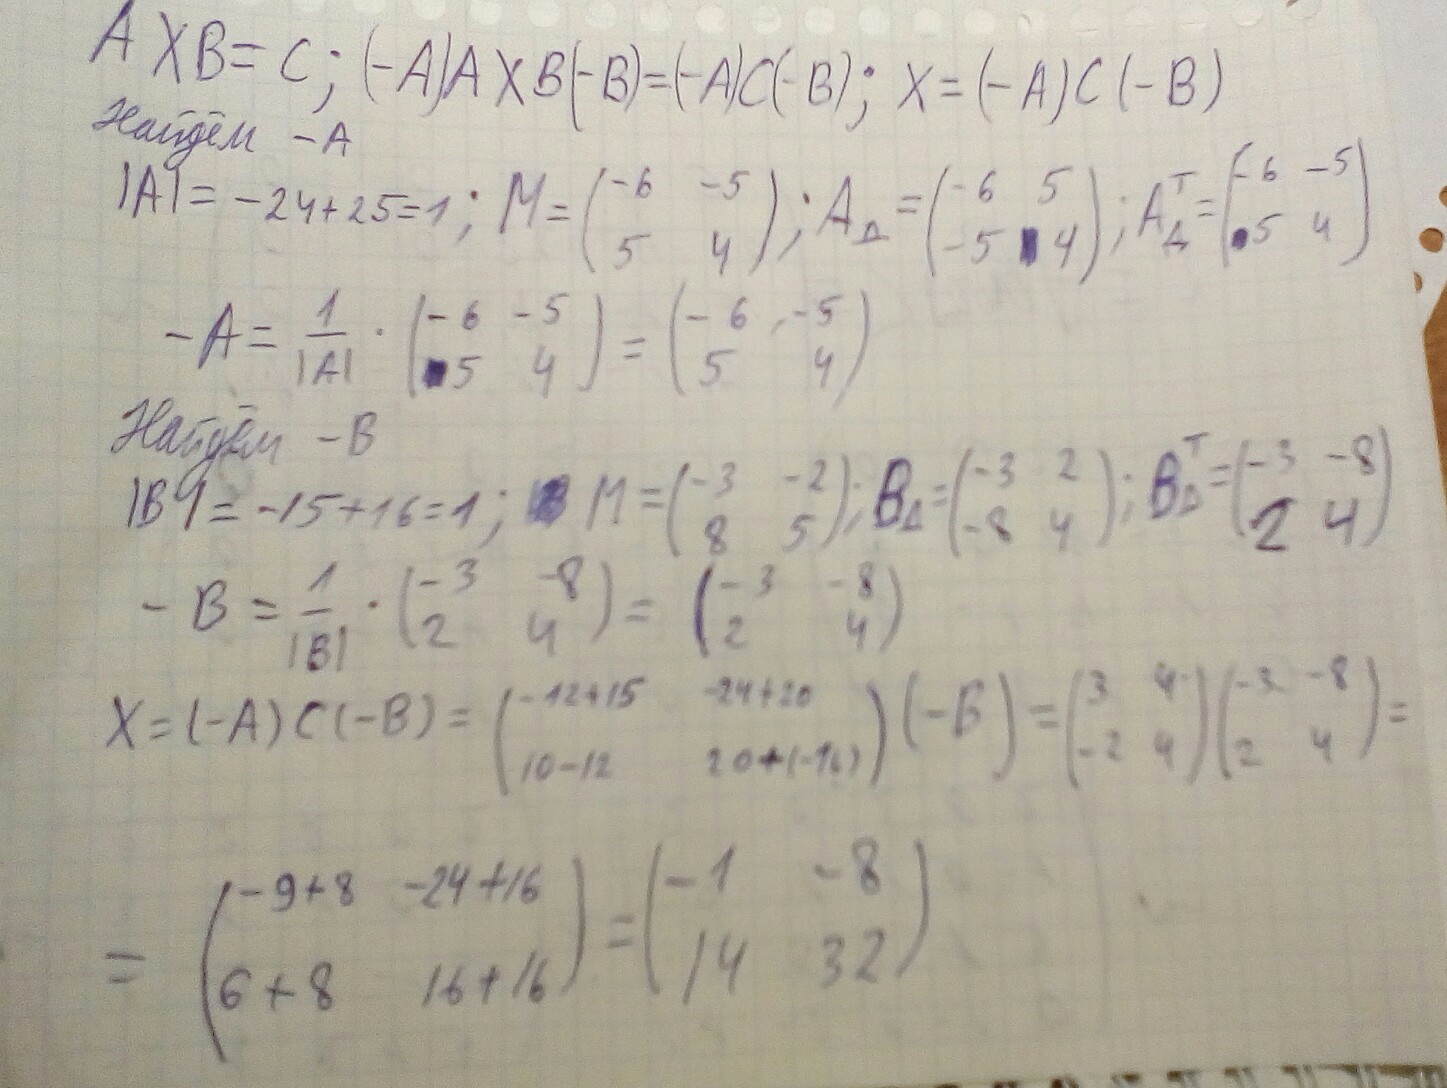 AXB = C; (-A)AXB(-B)=(-A)C(-B); X=(-A)C(-B)
Найдём -A
|A| = -24+25=1; M=(-6 -5; 5 4); A_Δ=(-6 5; -5 4); A_Δ^T=(-6 -5; 5 4)
-A = 1/|A| · (-6 -5; 5 4) = (-6 -5; 5 4)
Найдём -B
|B| = -15+16=1; M=(-3 -2; 8 5); B_Δ=(-3 2; -8 4); B_Δ^T=(-3 -8; 2 4)
-B = 1/|B| · (-3 -8; 2 4) = (-3 -8; 2 4)
X=(-A)C(-B) = (-12+15 -24+20; 10-12 20+(-16)) (-B) = (3 4; -2 4)(-3 -8; 2 4) =
= (-9+8 -24+16; 6+8 16+16) = (-1 -8; 14 32)